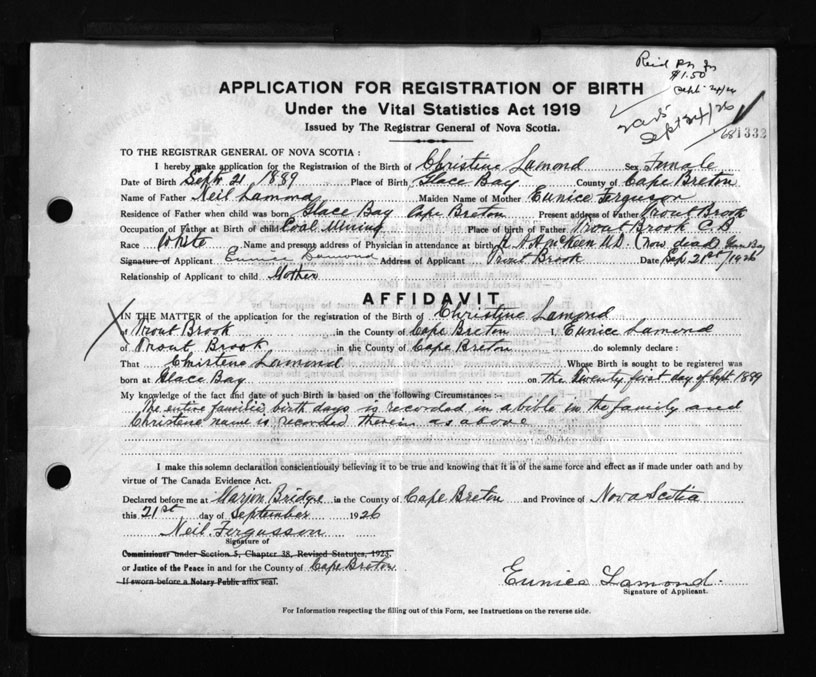 $1.50
Sept 24/26
681332
APPLICATION FOR REGISTRATION OF BIRTH
Under the Vital Statistics Act 1919
Issued by The Registrar General of Nova Scotia.
TO THE REGISTRAR GENERAL OF NOVA SCOTIA :
I hereby make application for the Registration of the Birth of Christine Lamond Sex Female
Date of Birth Sept. 21, 1889 Place of Birth Glace Bay County of Cape Breton
Name of Father Neil Lamond Maiden Name of Mother Eunice Ferguson
Residence of Father when child was born Glace Bay Cape Breton Present address of Father Trout Brook
Occupation of Father at Birth of child Coal Mining Place of birth of Father Trout Brook C.B.
Race White Name and present address of Physician in attendance at birth McKeen M.D. (Now dead)
Signature of Applicant Eunice Lamond Address of Applicant Trout Brook Date Sep 21st/1926
Relationship of Applicant to child Mother
AFFIDAVIT
IN THE MATTER of the application for the registration of the Birth of Christine Lamond
of Trout Brook in the County of Cape Breton I, Eunice Lamond
of Trout Brook in the County of Cape Breton do solemnly declare :
That Christene Lamond Whose Birth is sought to be registered was
born at Glace Bay on the Twenty first day of Sept. 1889
My knowledge of the fact and date of such Birth is based on the following Circumstances :-
The entire families birth days is recorded in a bible in the family and
Christene name is recorded therein as above
I make this solemn declaration conscientiously believing it to be true and knowing that it is of the same force and effect as if made under oath and by
virtue of The Canada Evidence Act.
Declared before me at Marion Bridge in the County of Cape Breton and Province of Nova Scotia
this 21st day of September 1926
Neil Fergusson
Signature of
Commissioner under Section 5, Chapter 38, Revised Statutes, 1923.
or Justice of the Peace in and for the County of Cape Breton
If sworn before a Notary Public affix seal.
Eunice Lamond.
Signature of Applicant.
For Information respecting the filling out of this Form, see Instructions on the reverse side.